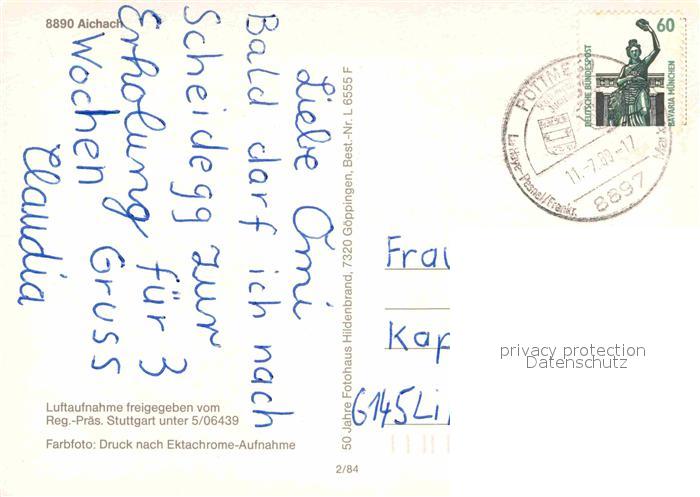 8890 Aichach
Liebe Omi
Bald darf ich nach
Scheidegg zur
Erholung für 3
Wochen Gruss
Claudia
Luftaufnahme freigegeben vom
Reg.-Präs. Stuttgart unter 5/06439
Farbfoto: Druck nach Ektachrome-Aufnahme
50 Jahre Fotohaus Hildenbrand, 7320 Göppingen, Best.-Nr. L 6555 F
2/84
60
DEUTSCHE BUNDESPOST
BAVARIA MÜNCHEN
PÖTTME
8897
Frau
Kap
6145 Li
privacy protection
Datenschutz